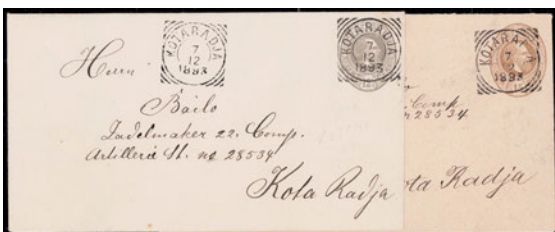 KOTARADJA
7
12
1893
KOTARADJA
7
12
1893
KOTARADJA
7
1893
Herrn
Bailo
Zadelmaker 22. Comp.
Artillerie St. no 28534
Kota Radja
Comp
28534
ta Radja